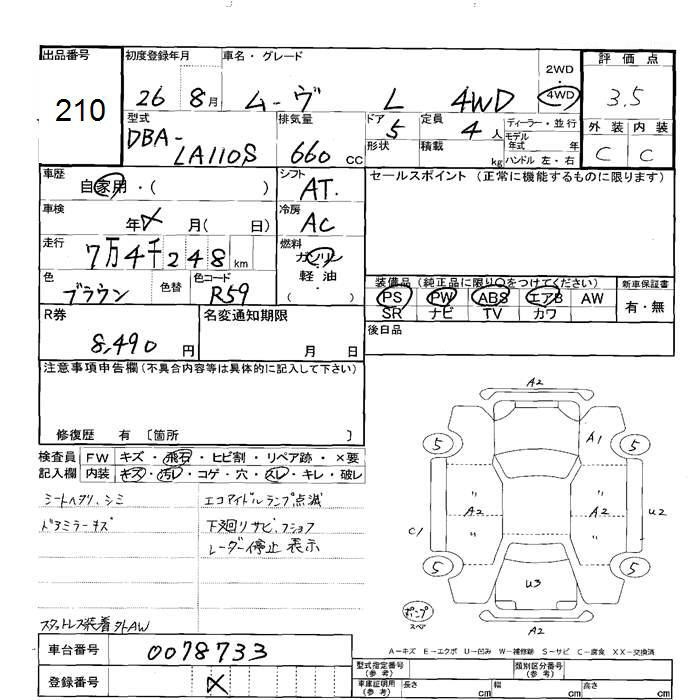 出品番号 初度登録年月 車名・グレード 2WD・4WD 評価点
210 26 8月 ムーヴ L 4WD 3.5
型式 排気量 ドア 5 定員 4人 ディーラー・並行 外装 内装
DBA-LA110S 660cc 形状 積載 kg モデル年式 年 C C
ハンドル 左・右
車歴 自家用・( ) シフト AT. セールスポイント (正常に機能するものに限ります)
車検 年 月( 日) 冷房 AC
走行 7万4千248km 燃料 ガソリン・軽油 ( )
色 ブラウン 色替 色コード R59 装備品(純正品に限り○をつけてください) 新車保証書
PS PW ABS エアB AW 有・無
SR ナビ TV カワ
R券 8,490円 名変通知期限 月 日 後日品
注意事項申告欄(不具合内容等は具体的に記入して下さい)
修復歴 有 〔箇所 〕
検査員 FW キズ・飛石・ヒビ割・リペア跡・×要
記入欄 内装 キズ・汚レ・コゲ・穴・スレ・キレ・破レ
シートヘタリ、シミ エコアイドルランプ点滅
ドアミラーキズ 下廻リサビ、フショク
レーダー停止 表示
スタットレス装着 外AW
A2
5 A1 5
〃 〃
C1 A2 A2 U2
〃 〃
5 5
U3
スペア
A2
A-キズ E-エクボ U-凹み W-補修跡 S-サビ C-腐食 XX-交換済
車台番号 0078733
登録番号
型式指定番号(参考) 類別区分番号(参考)
車庫証明用(参考) 長さ cm 幅 cm 高さ cm